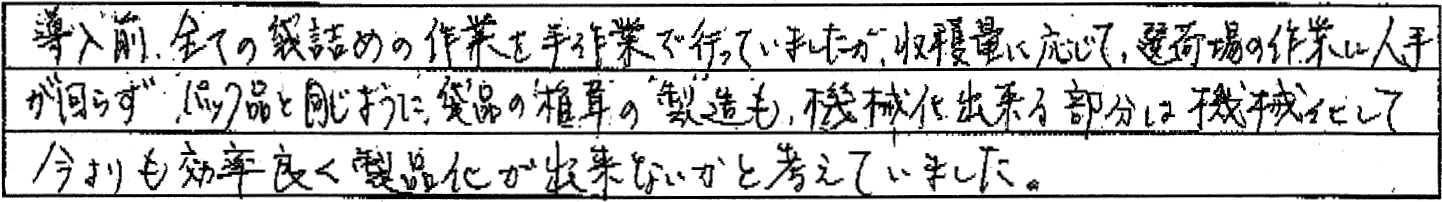 導入前、全ての袋詰めの作業を手作業で行っていましたが、収穫量に応じて、選荷場の作業に人手
が回らず パック品と同じように、袋品の椎茸の製造も、機械化出来る部分は機械化して
今よりも効率良く製品化が出来ないかと考えていました。